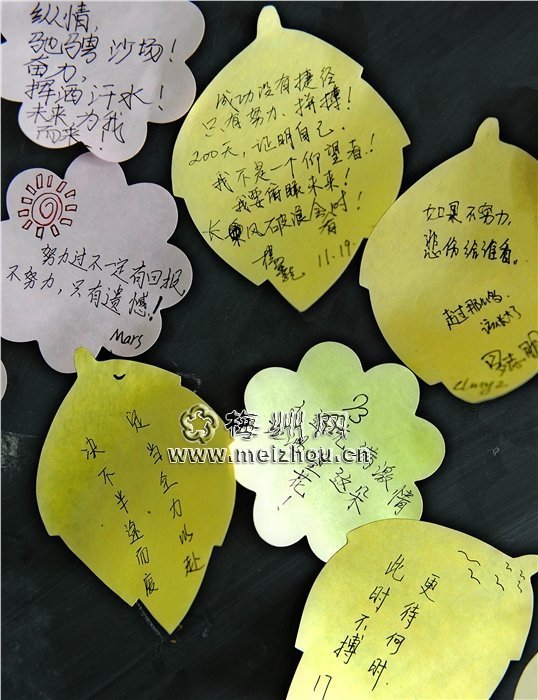 纵情,
驰骋沙场!
奋力,
挥洒汗水!
未来,为我
而来!
成功没有捷径
只有努力、拼搏!
200天,证明自己.
我不是一个仰望者!
我要俯瞰未来!
长乘风破浪会有时!
11.19.
如果不努力,
悲伤给谁看。
走过那么多
努力过不一定有回报,
不努力,只有遗憾!
Mars
定当全力以赴
决不半途而废
满激情
这朵
花!
梅州网
www.meizhou.cn
更待何时.
此时不搏
17